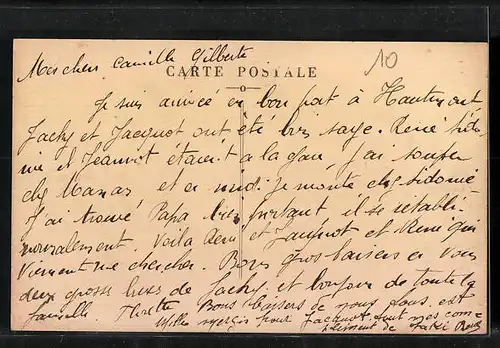 Mes chers Camille Gilberte
10
CARTE POSTALE
Je suis arrivée en bon port à Hautmont
Jacky et Jacquot ont été bien sage. René Sido-
nie et Jeannot étaient a la gare, j'ai souper
chez Maman et ce midi je monte chez Sidonie
J'ai trouvé Papa bien portant il se rétabli
moralement. Voila René et Jacquot et René qui
viennent me chercher. Bons gros baisers en vous
deux grosses bises de Jacky et bonjour de toute la
famille Bons baisers de nous tous. est
Mille merçis pour Jacquot tout mes com-
pliment de René